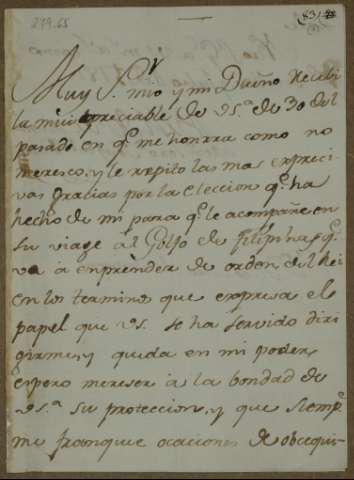 279.65
(83)
Muy S.r mio y mi Dueño Recebi
la mui apreciable de vs.ª de 30 del
pasado en q.e me honrra como no
meresco, y le repito las mas expreci
vas gracias por la eleccion q.e ha
hecho de mi para q.e le acompañe en
su viage al Golfo de Filipinas q.e
va á enprender de orden del Rei
en los terminos que expresa el
papel que vs. se ha servido diri
girme, y queda en mi poder,
espero mereser á la bondad de
vs.ª su proteccion, y que siemp.e
me franquie ocaciones de obcequi-